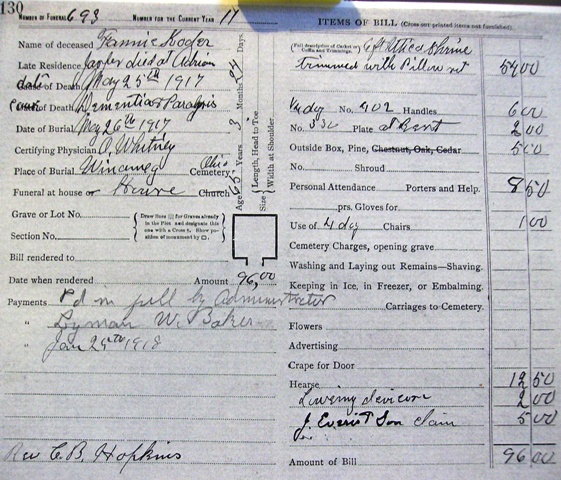 130
NUMBER OF FUNERAL 693 NUMBER FOR THE CURRENT YEAR 11
Name of deceased Fannie Yoder
Late Residence died at Adrian
date Cause of Death May 25th 1917
Cause Date of Death Dementia & Paralysis
Date of Burial May 26th 1917
Certifying Physician O. Whitney
Place of Burial Winameg Ohio Cemetery
Funeral at house or House Church
Age 65 Years 3 Months 24 Days
Size { Length, Head to Toe
Width at Shoulder
Grave or Lot No.
Section No.
{ Draw lines for Graves already in the Plot and designate this one with a Cross. Show position of monument by □. }
Bill rendered to
Date when rendered Amount 96,00
Payments Pd in full by Administrator
" Lyman W. Baker
" Jan 25th 1918
Rev C. B. Hopkins
ITEMS OF BILL (Cross out printed items not furnished).
(Full description of Casket or Coffin and Trimmings. 6 ft Shrine
trimmed with Pillow set 54 00
1/2 dz No. 402 Handles 6 00
No. 330 Plate At Rest 2 00
Outside Box, Pine, Chestnut, Oak, Cedar 5 00
No. Shroud
Personal Attendance Porters and Help. 8 50
prs. Gloves for
Use of 4 dz Chairs 1 00
Cemetery Charges, opening grave
Washing and Laying out Remains—Shaving.
Keeping in Ice, in Freezer, or Embalming.
Carriages to Cemetery.
Flowers
Advertising
Crape for Door
Hearse 12 50
Lowering device 2 00
J. Everist Son claim 5 00
Amount of Bill 96 00